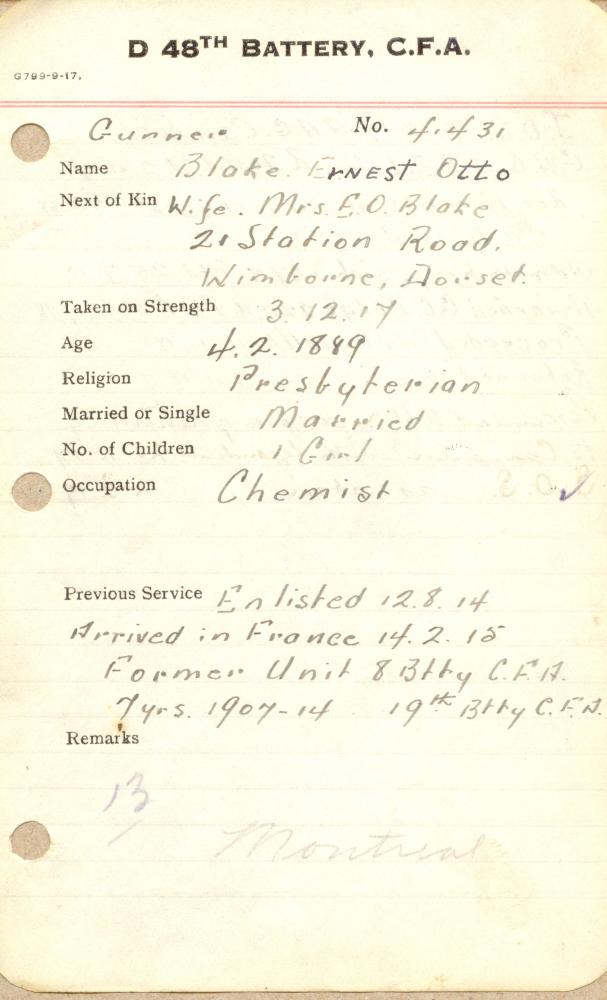 D 48TH BATTERY, C.F.A.
G799-9-17.
Gunner No. 41431
Name Blake. ERNEST Otto
Next of Kin Wife. Mrs. E. O. Blake
21 Station Road.
Wimborne, Dorset.
Taken on Strength 3.12.17
Age 4.2.1889
Religion Presbyterian
Married or Single Married
No. of Children 1 Girl
Occupation Chemist
Previous Service Enlisted 12.8.14
Arrived in France 14.2.15
Former Unit 8 Btty C.F.A.
7 yrs. 1907-14 19th Btty C.F.A.
Remarks
13
Montreal